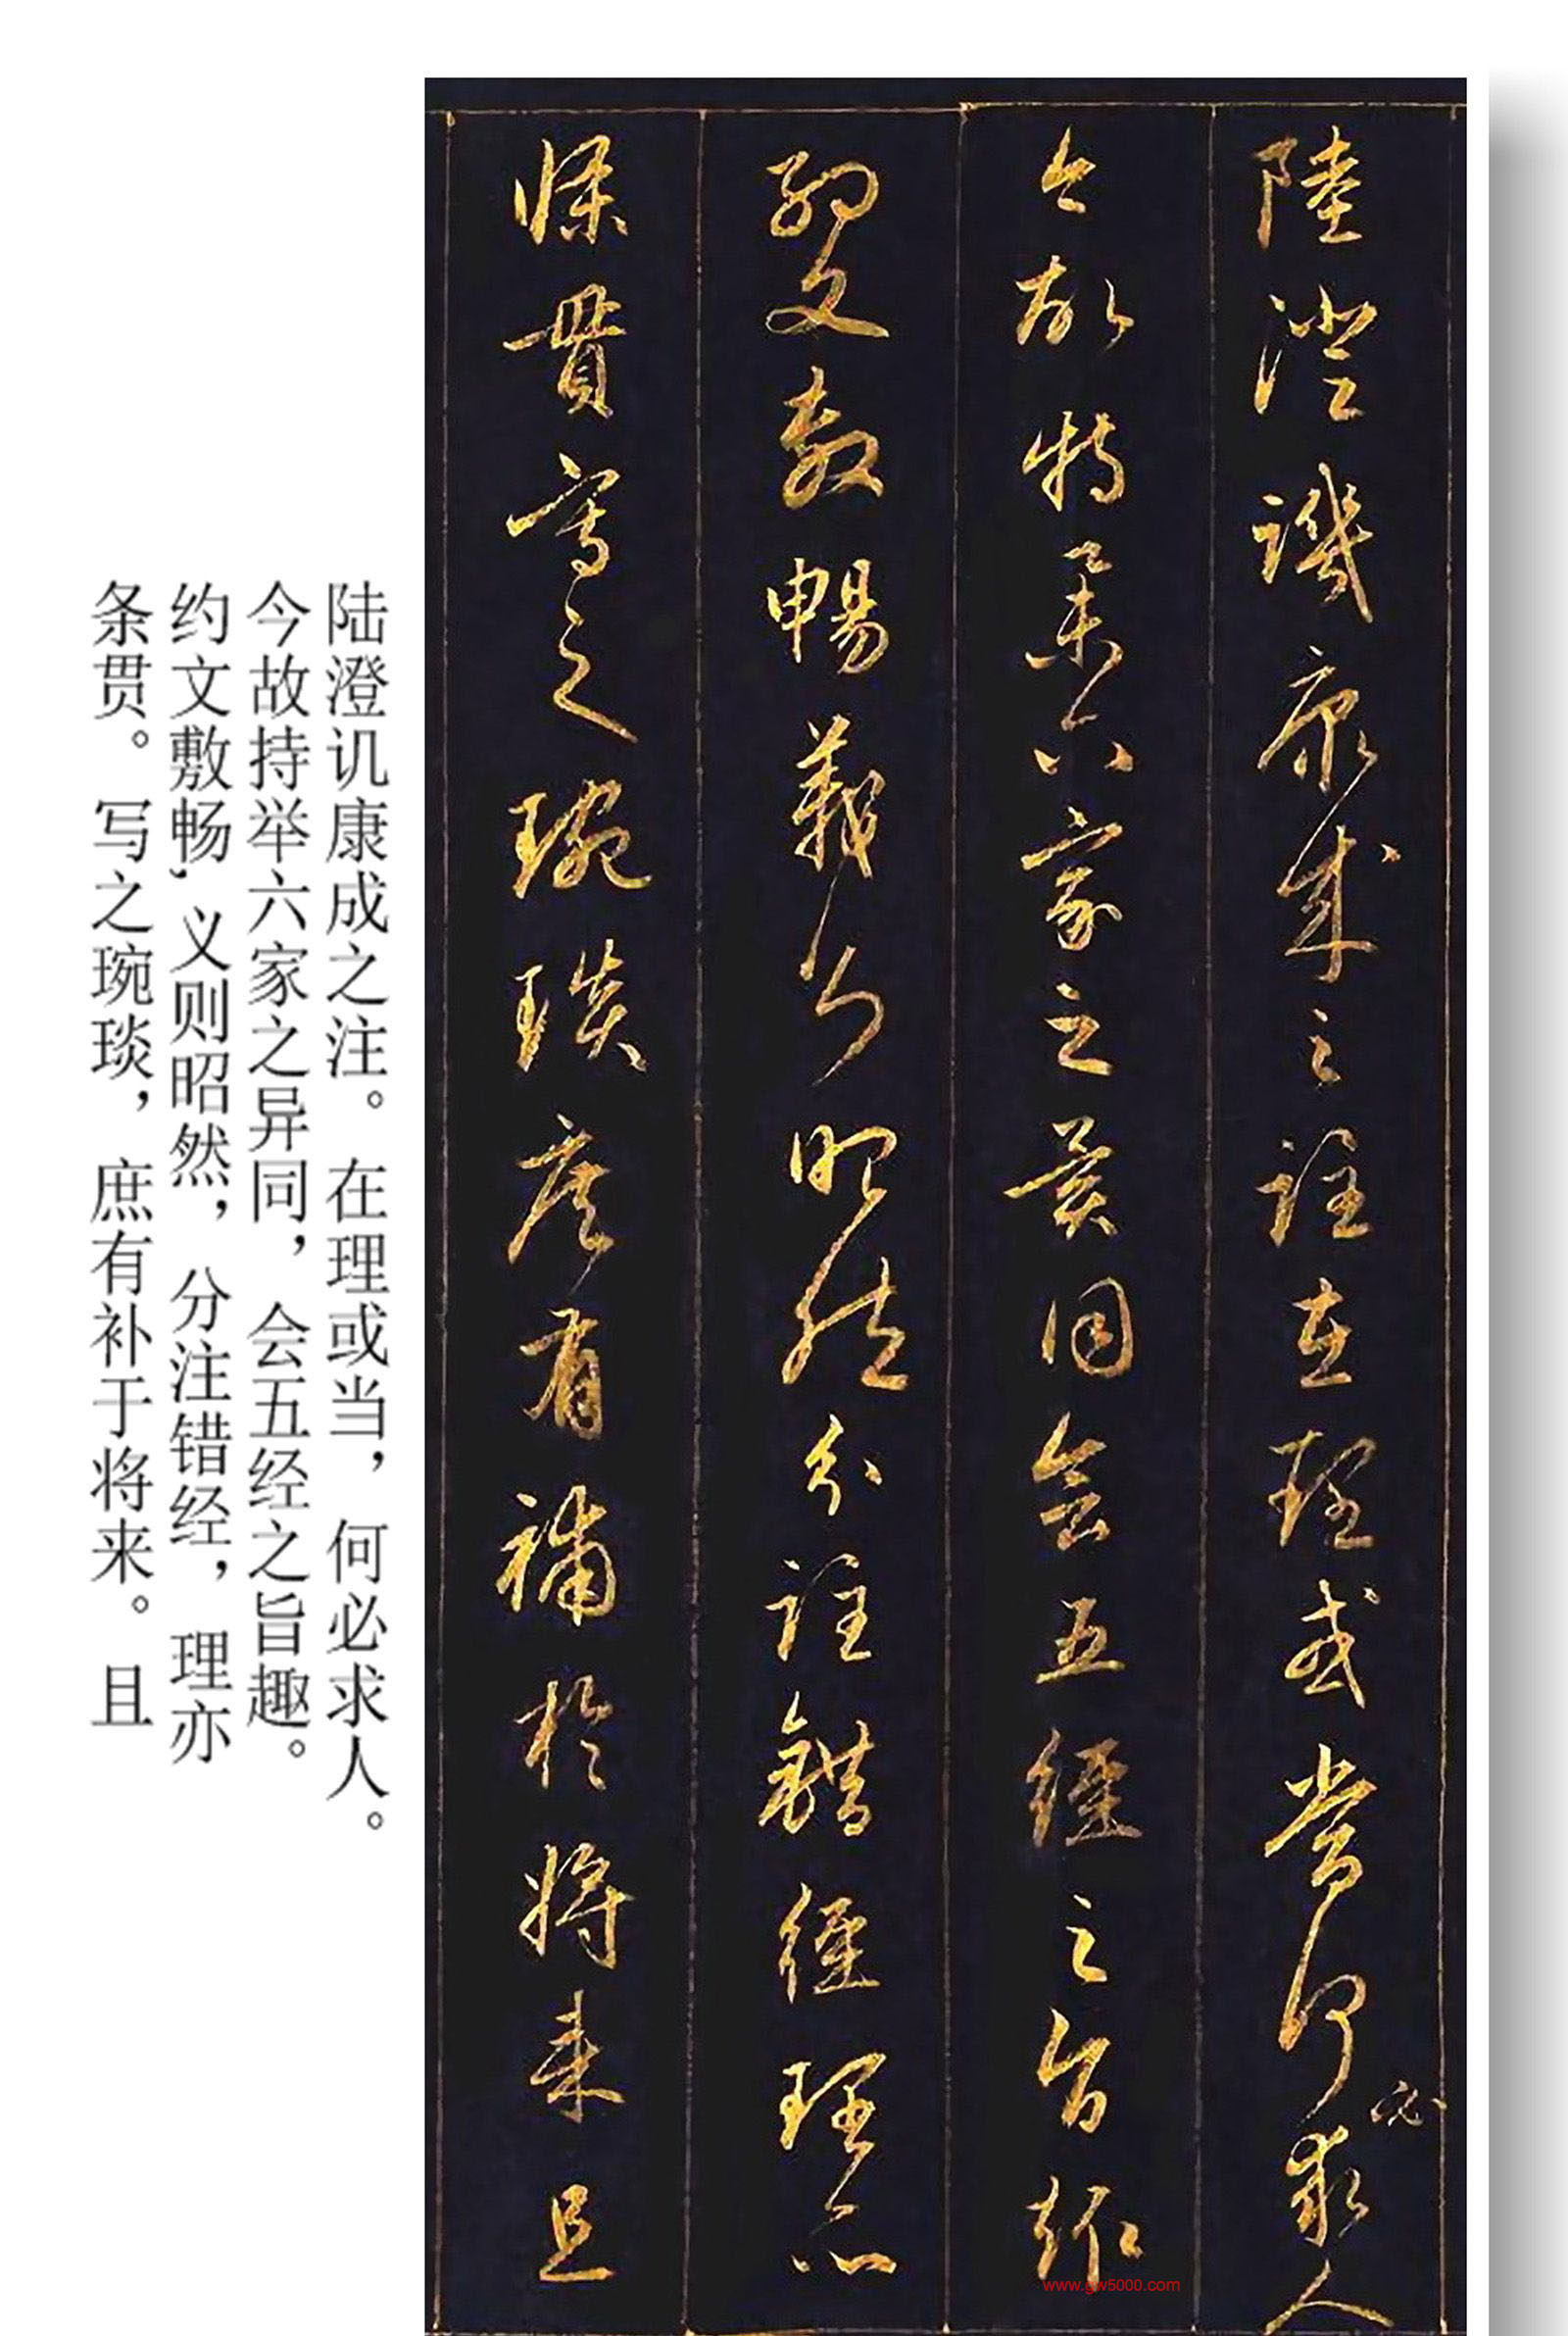 陸澄譏康成之註在理或當何必求人
今故特舉六家之異同会五經之旨趣
約文敷暢義則昭然分註錯經理亦
條貫寫之琬琰庶有補於將来且
陆澄讥康成之注。在理或当，何必求人。
今故持举六家之异同，会五经之旨趣。
约文敷畅，义则昭然，分注错经，理亦
条贯。写之琬琰，庶有补于将来。且
www.gw5000.com